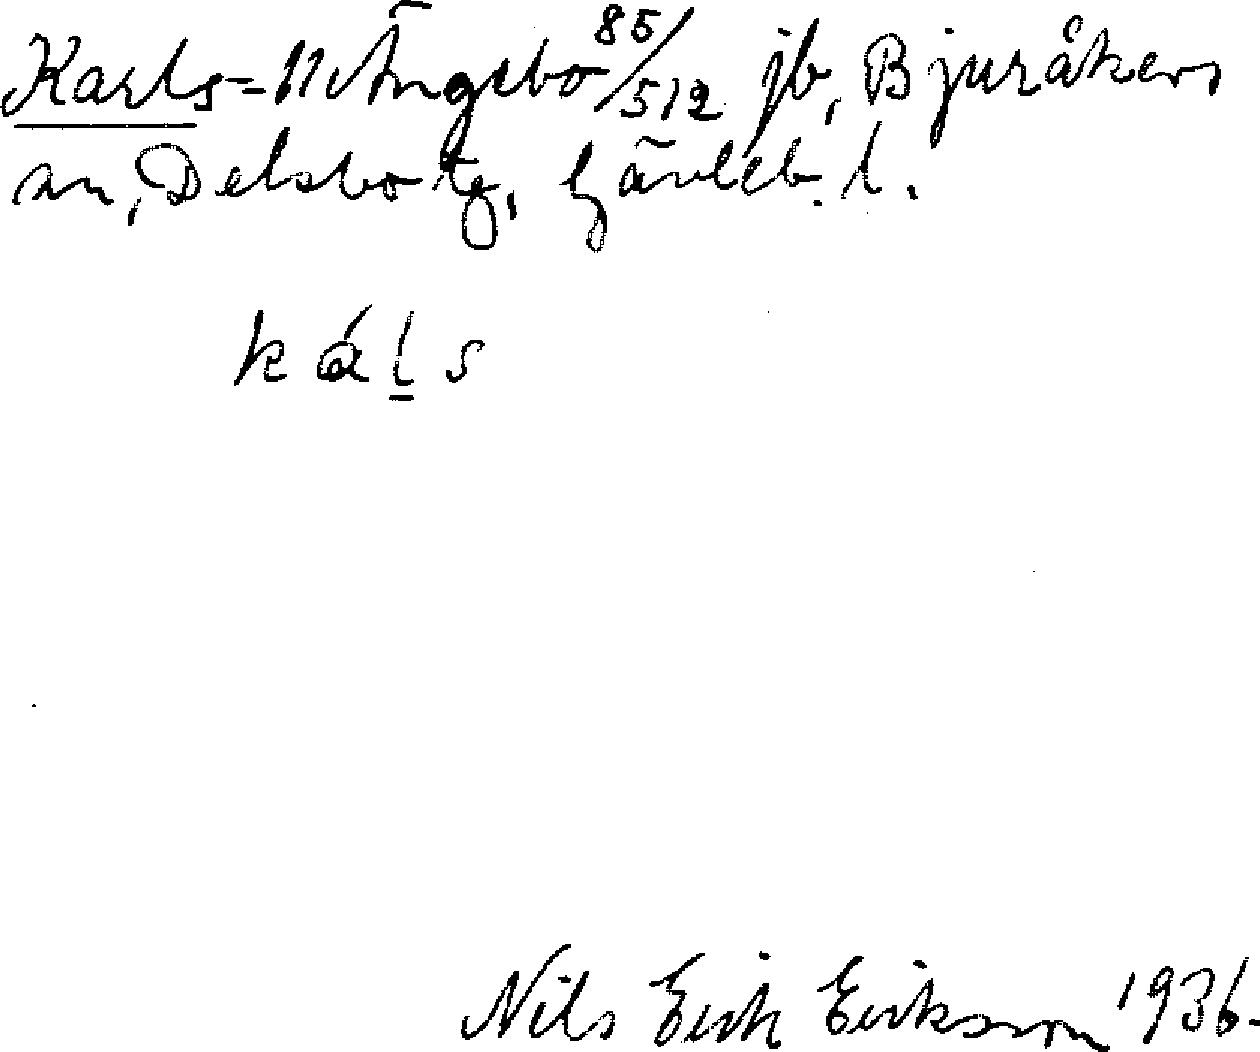 Karls=11 i Ängebo 85/512 jb, Bjuråkers
sn, Delsbo tg, Gävleb. l.
káḻs
Nils Erik Erikson 1936.